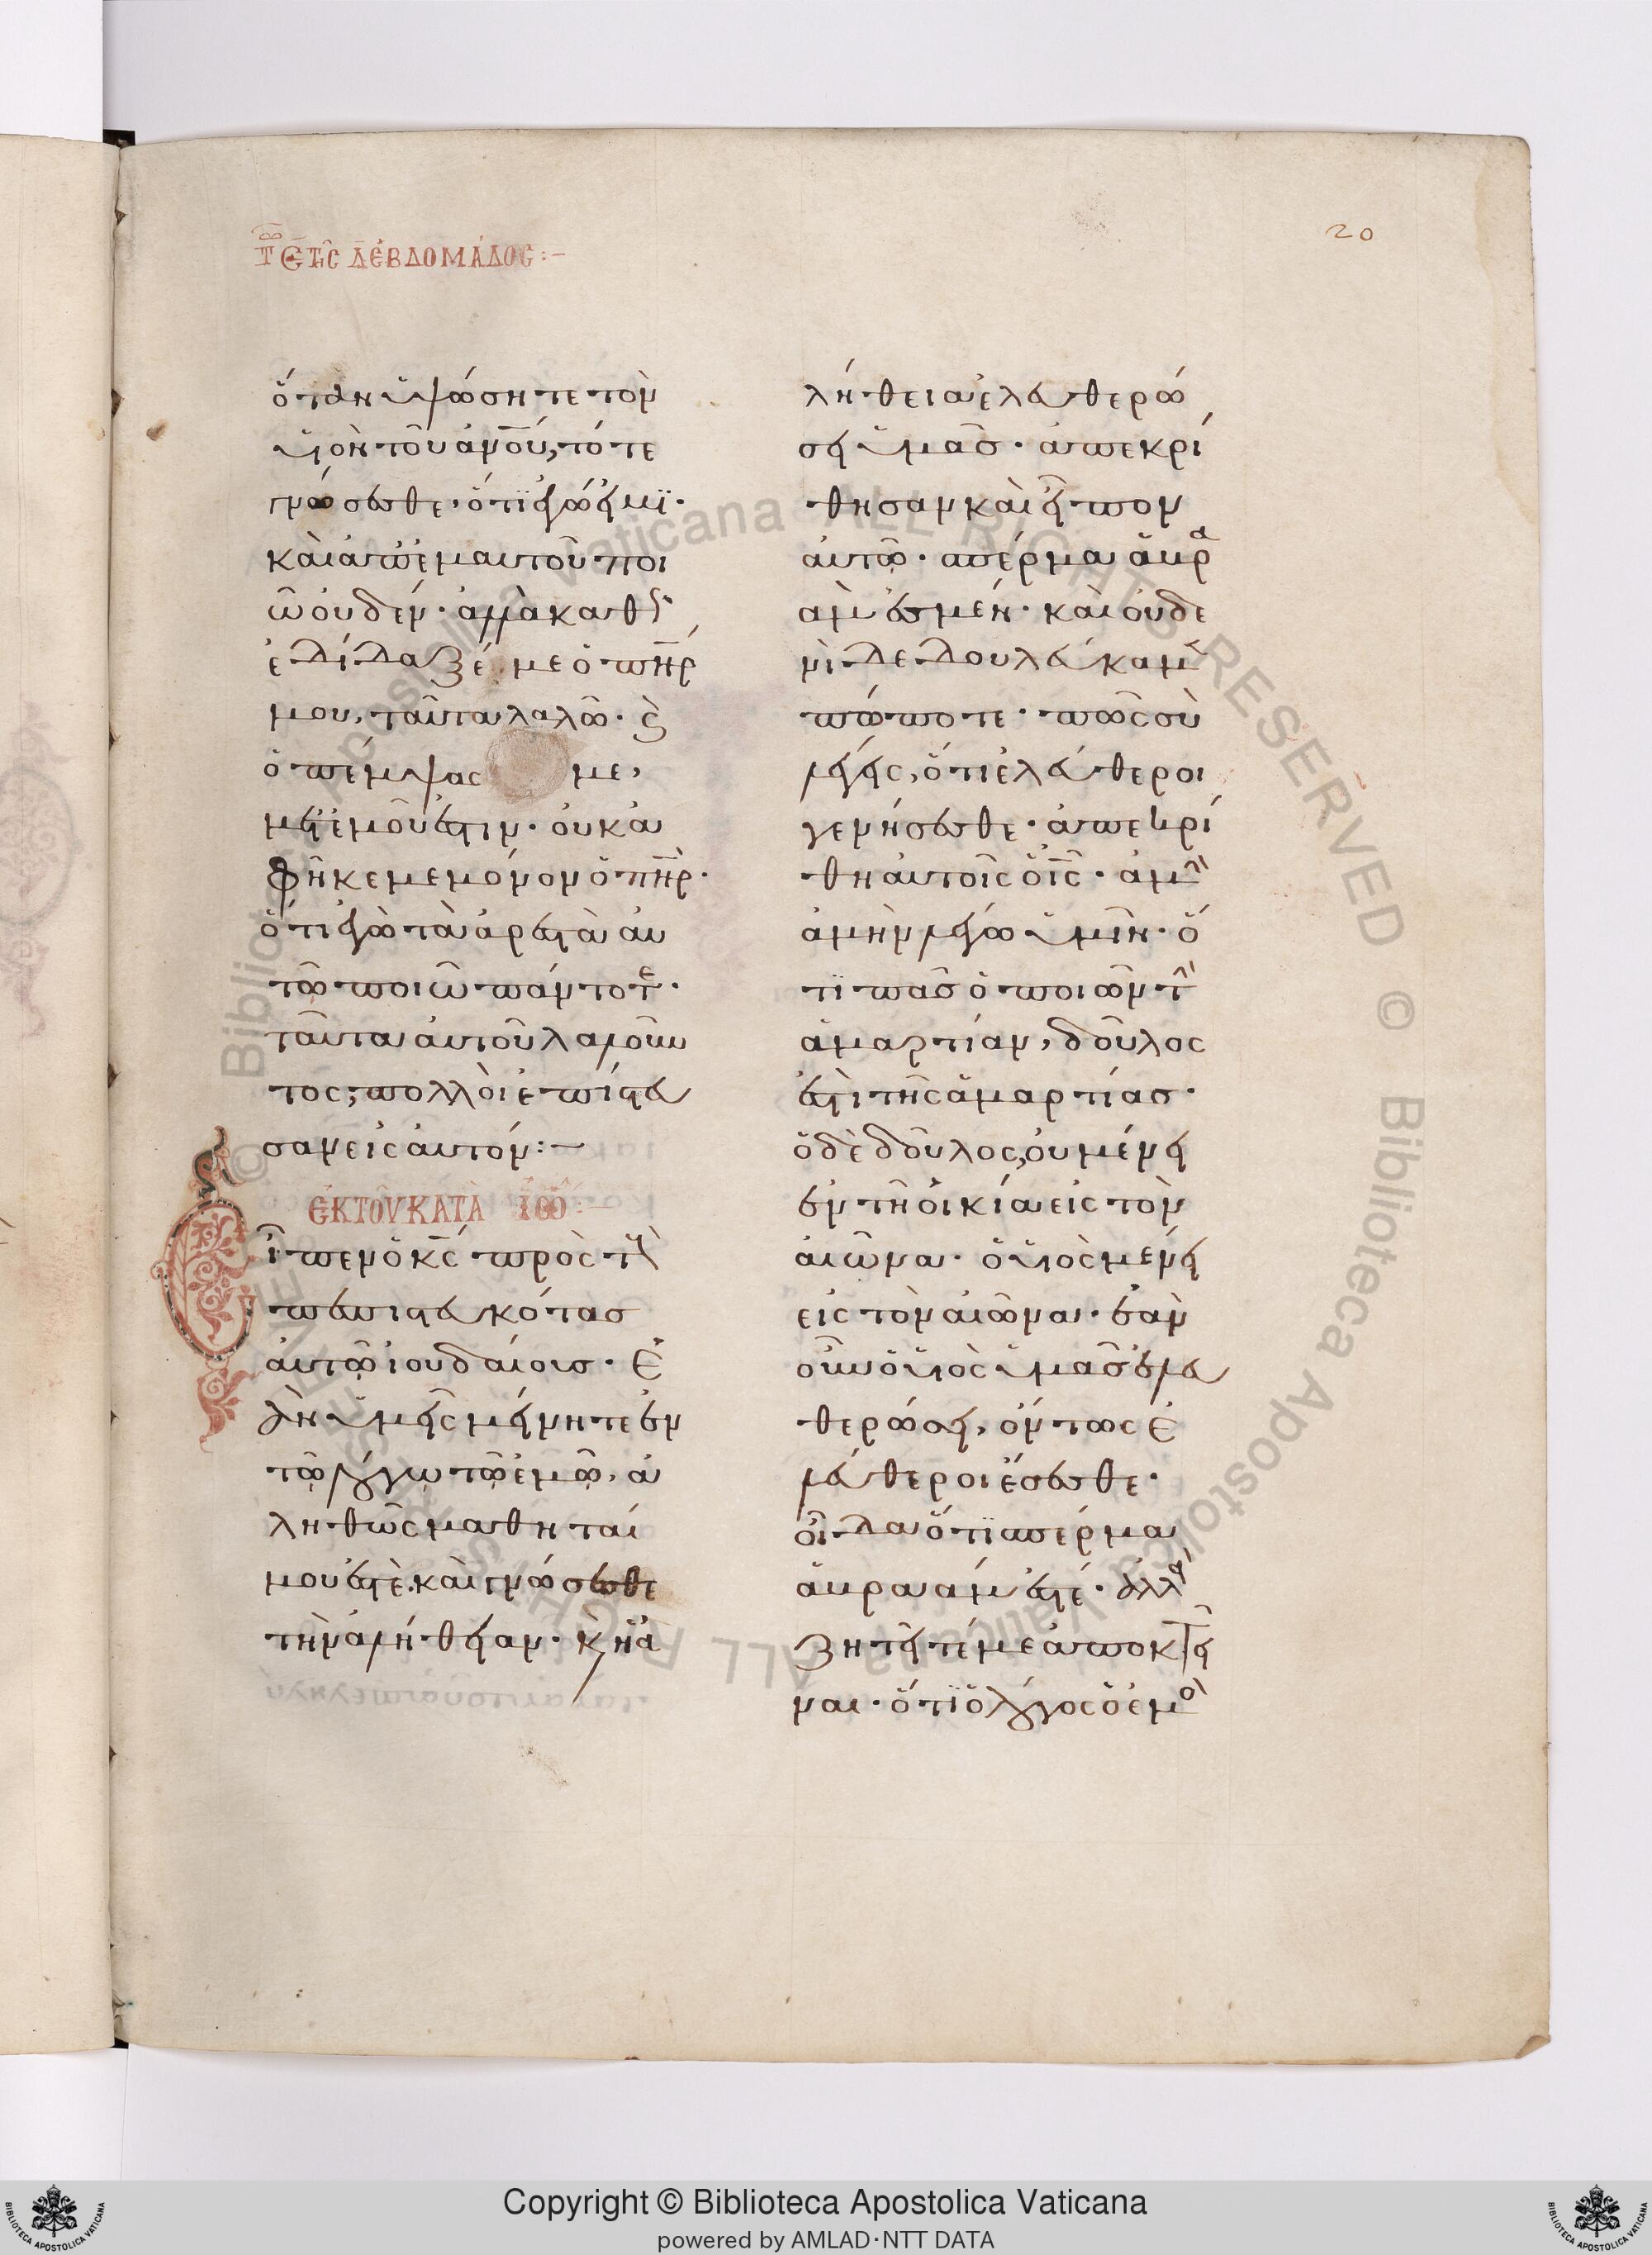 20
Τῶ ε τῆς δ ἑβδομάδος:–
ὅταν ὑψώσητε τὸν
υἱὸν τοῦ ἀνου, τότε
γνώσεσθε, ὅτι ἐγώ εἰμι·
καὶ ἀπ' ἐμαυτοῦ ποι
ῶ οὐδέν· ἀλλὰ καθὼς
ἐδίδαξέ με ὁ πηρ
μου, ταῦτα λαλῶ· καὶ
ὁ πέμψας με,
μετ' ἐμοῦ ἐστιν· οὐκ ἀ
φῆκέ με μόνον ὁ πηρ·
ὅτι ἐγὼ τὰ ἀρεστὰ αὐ
τῶ ποιῶ πάντοτε·
ταῦτα αὐτοῦ λαλοῦν
τος, πολλοὶ ἐπίστευ
σαν εἰς αὐτόν:–
ἐκ τοῦ κατὰ ἰω:–
Εἶπεν ὁ κς πρὸς τοὺς
πεπιστευκότας
αὐτῷ ἰουδαίους· ἐ
ὰν ὑμεῖς μείνητε ἐν
τῷ λόγῳ τῷ ἐμῷ, ἀ
ληθῶς μαθηταί
μου ἐστὲ· καὶ γνώσεσθε
τὴν ἀλήθειαν· καὶ ἡ ἀ
λήθεια ἐλευθερώ
σει ὑμᾶς· ἀπεκρί
θησαν καὶ εἶπον
αὐτῷ· σπέρμα ἁβρα
ὰμ ἐσμέν· καὶ οὐδε
νὶ δεδουλεύκαμεν
πώποτε· πῶς σὺ
λέγεις, ὅτι ἐλεύθεροι
γενήσεσθε· ἀπεκρί
θη αὐτοῖς ὁ ις· ἀμὴν
ἀμὴν λέγω ὑμῖν· ὅ
τι πᾶς ὁ ποιῶν τὴν
ἁμαρτίαν, δοῦλός
ἐστι τῆς ἁμαρτίας·
ὁ δὲ δοῦλος, οὐ μένει
ἐν τῇ οἰκία εἰς τὸν
αἰῶνα· ὁ υἱὸς μένει
εἰς τὸν αἰῶνα· ἐὰν
οὖν ὁ υἱὸς ὑμᾶς ἐλευ
θερώσει, ὄντως ἐ
λεύθεροι ἔσεσθε·
οἶδα ὅτι σπέρμα
ἁβραάμ ἐστέ· ἀλλὰ
ζητεῖτέ με ἀποκτεῖ
ναι· ὅτι ὁ λόγος ὁ ἐμὸς
Copyright © Biblioteca Apostolica Vaticana
powered by AMLAD·NTT DATA